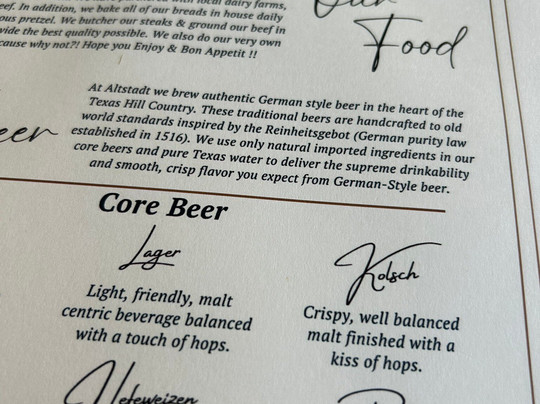 local dairy farms,
eef. In addition, we bake all of our breads in house daily
ous pretzel. We butcher our steaks & ground our beef in
vide the best quality possible. We also do our very own
cause why not?! Hope you Enjoy & Bon Appetit !!
Our
Food
At Altstadt we brew authentic German style beer in the heart of the
Texas Hill Country. These traditional beers are handcrafted to old
world standards inspired by the Reinheitsgebot (German purity law
established in 1516). We use only natural imported ingredients in our
core beers and pure Texas water to deliver the supreme drinkability
and smooth, crisp flavor you expect from German-Style beer.
eer
Core Beer
Lager
Light, friendly, malt
centric beverage balanced
with a touch of hops.
Kolsch
Crispy, well balanced
malt finished with a
kiss of hops.
Hefeweizen